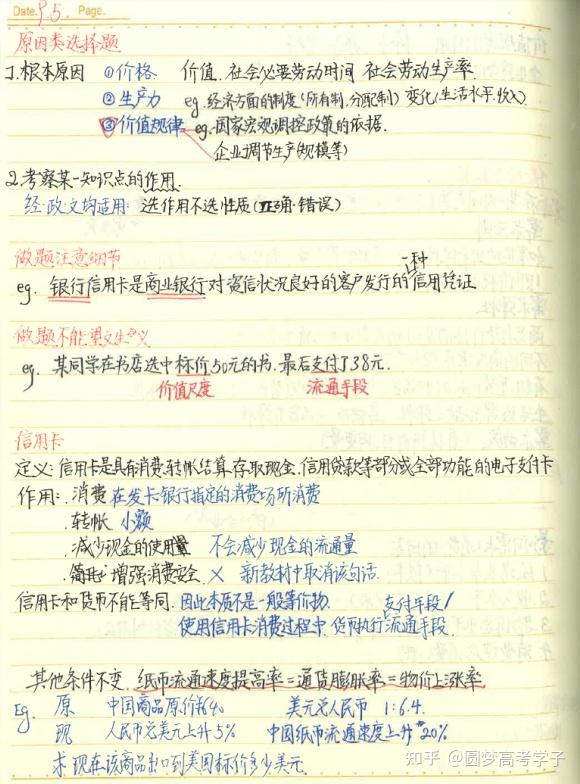 Date. 9.5. Page.
原因类选择题
1.根本原因 ①价格 价值.社会必要劳动时间 社会劳动生产率.
②生产力 eg.经济方面的制度(所有制,分配制) 变化(生活水平.收入)
③价值规律 eg.国家宏观调控政策的依据.
企业调节生产(规模等)
2.考察某一知识点的作用.
经.政.文均适用: 选作用不选性质(正确·错误)
做题注意细节
eg. 银行信用卡是商业银行对资信状况良好的客户发行的一种信用凭证
做题不能望文生义
eg. 某同学在书店选中标价50元的书.最后支付了38元.
价值尺度 流通手段
信用卡
定义:信用卡是具有消费.转帐结算.存取现金.信用贷款等部分或全部功能的电子支付卡
作用: .消费 在发卡银行指定的消费场所消费
.转帐 小额
.减少现金的使用量 不会减少现金的流通量
.简化 增强消费安全 × 新教材中取消该句话.
信用卡和货币不能等同.因此本质不是一般等价物. 支付手段/
使用信用卡消费过程中,货币执行流通手段.
其他条件不变.纸币流通速度提高率=通货膨胀率=物价上涨率.
Eg. 原 中国商品原价640 美元兑人民币 1:6.4.
现 人民币兑美元上升5% 中国纸币流通速度上升20%
求 现在该商品出口到美国标价多少美元.
知乎 @圆梦高考学子